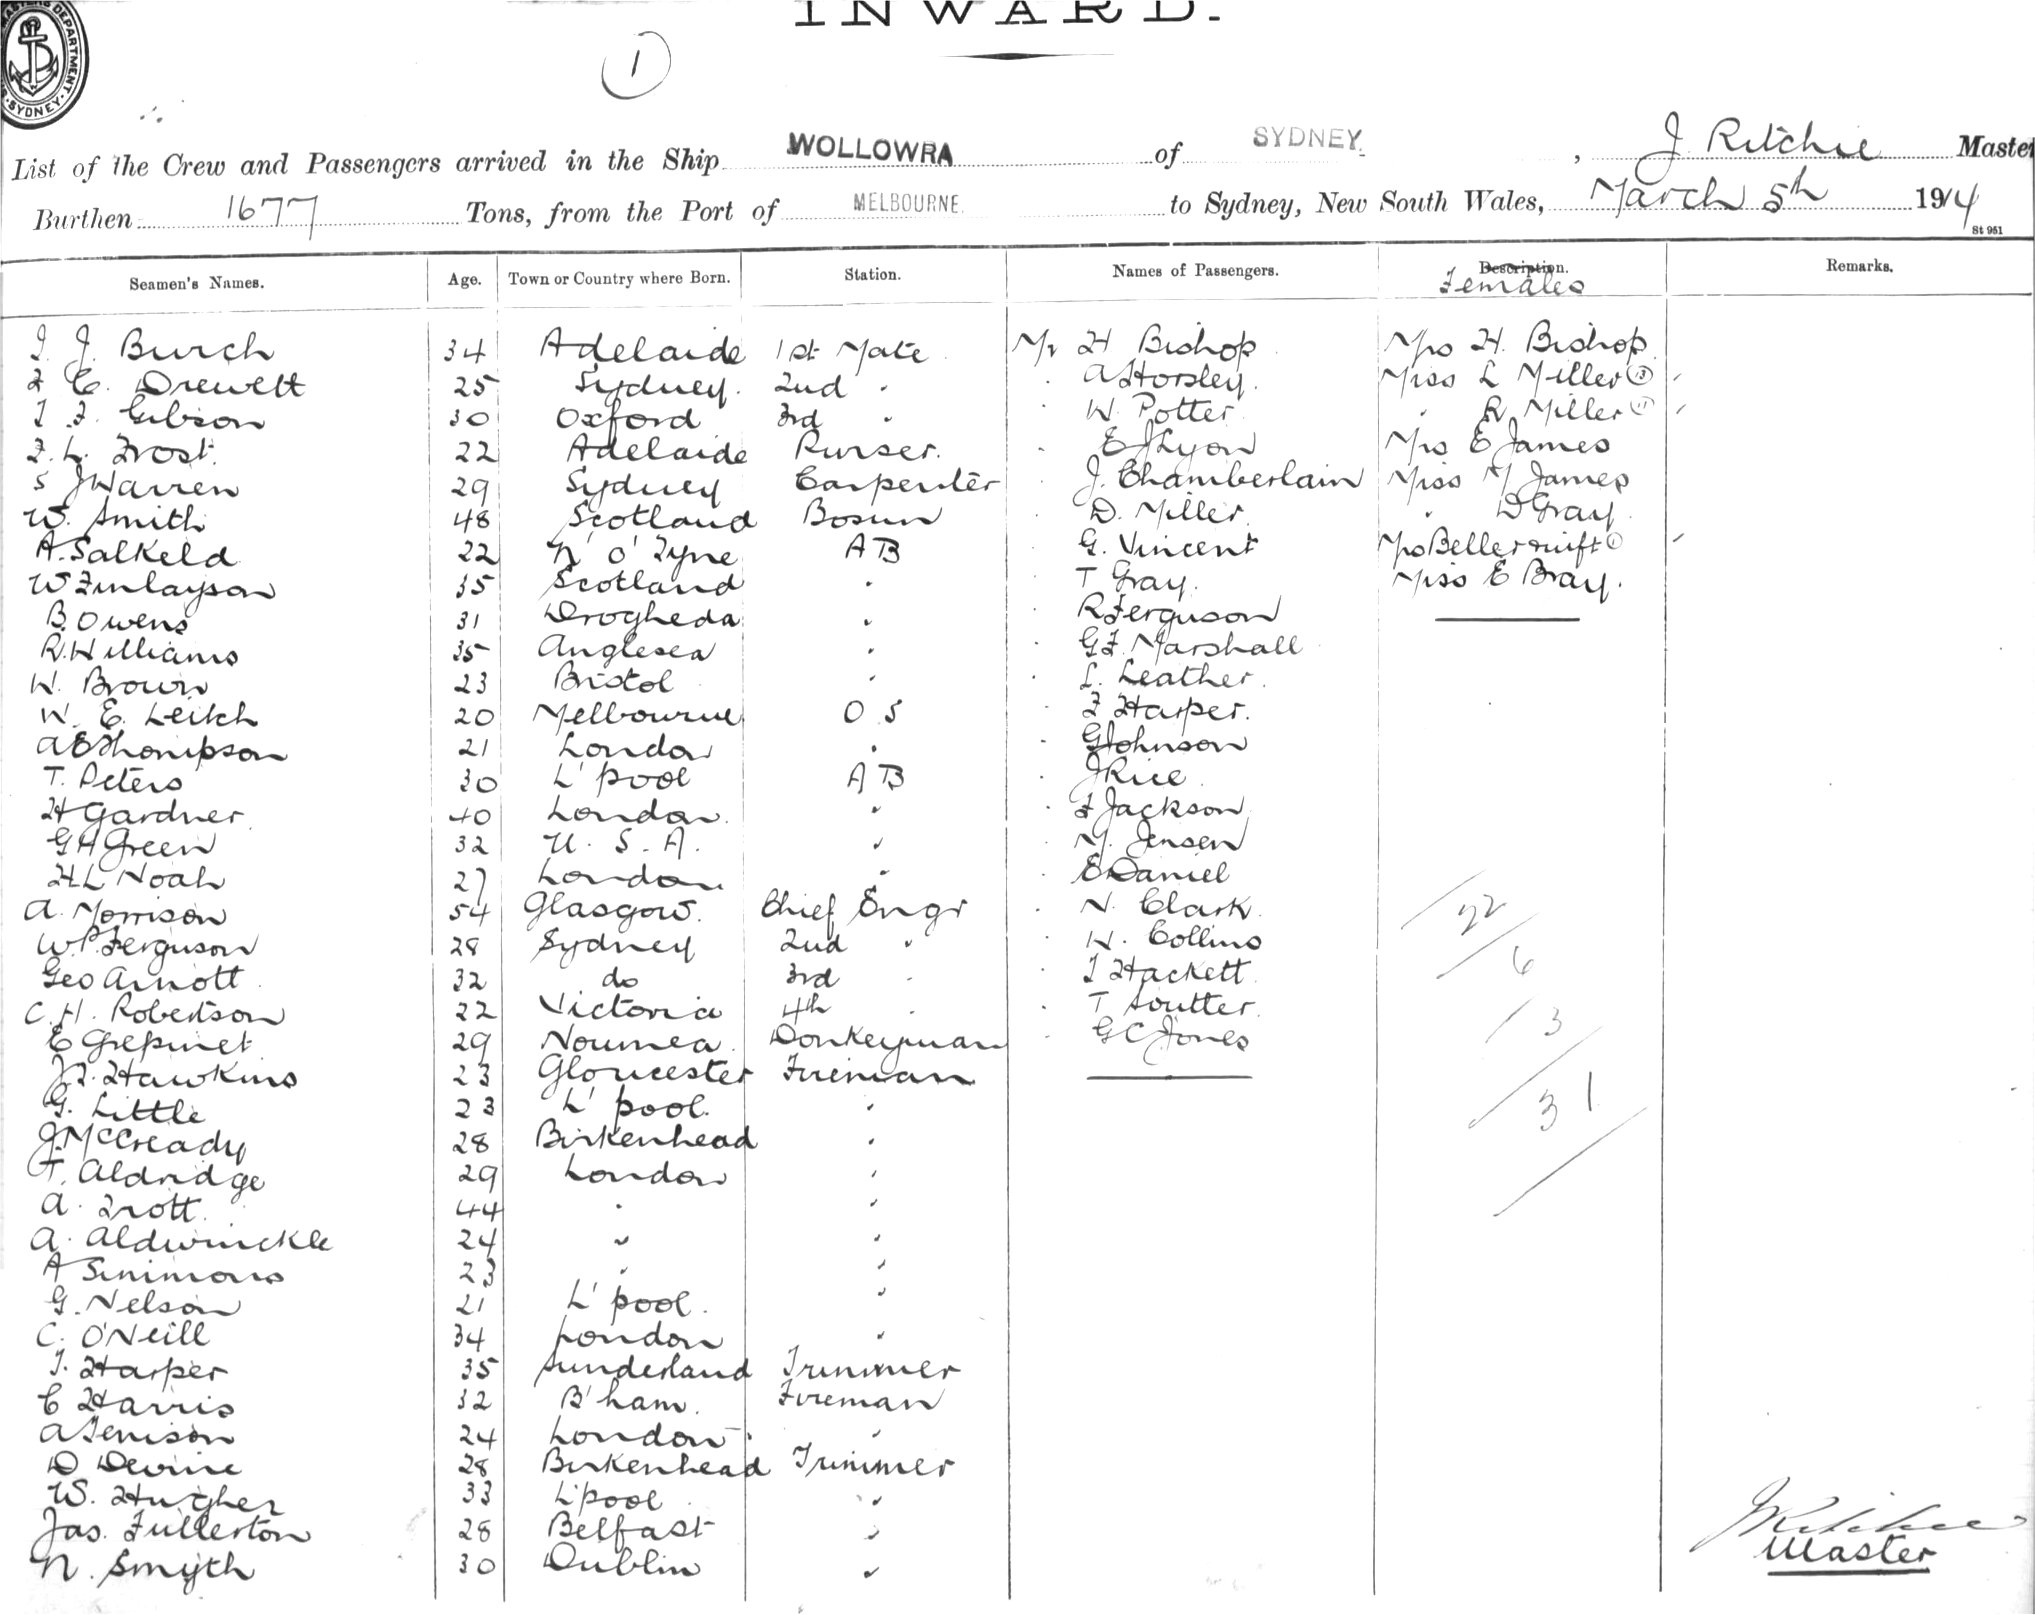 INWARD.
1
DEPARTMENT. SYDNEY.
List of the Crew and Passengers arrived in the Ship WOLLOWRA of SYDNEY. , J Ritchie Master
Burthen 1677 Tons, from the Port of MELBOURNE. to Sydney, New South Wales, March 5th 1914
St 951
Seamen's Names. Age. Town or Country where Born. Station. Names of Passengers. Description. Remarks.
Females
J. J. Burch 34 Adelaide 1st Mate Mr H Bishop Mrs H. Bishop
F C. Drewett 25 Sydney. 2nd " " A Horsley. Miss L Miller 13
T. F. Gibson 30 Oxford 3rd " " W. Potter " R. Miller 11
F. L. Frost. 22 Adelaide Purser. " E J Lyon Mrs E James
S J Warren 29 Sydney Carpenter " J. Chamberlain Miss M James
W. Smith 48 Scotland Bosun " D. Miller " D Gray
A. Salkeld 22 N' O' Tyne AB " G. Vincent Mrs
W Finlayson 35 Scotland " " T Gray. Miss E Bray.
B. Owens 31 Drogheda " " R Ferguson
R. Williams 35 Anglesea " " G F. Marshall
W. Brown 23 Bristol " " L. Leather.
W. E. Leitch 20 Melbourne O S " F Harper.
A E Thompson 21 London " " G Johnson
T. Peters 30 L'pool AB " J Rice
H Gardner. 40 London. " " F Jackson
G H Green 32 U. S. A. " " M. Jensen
H L Noah 27 London. " " E Daniel
A. Morrison 54 Glasgow. Chief Engr " N. Clark. 22
W P. Ferguson 28 Sydney 2nd " " H. Collins 6
Geo Arnott 32 do 3rd " " J Hackett
C. H. Robertson 22 Victoria 4th " " T Soutter. 3
E Grepinet 29 Noumea. Donkeyman " G C Jones
Hawkins 23 Gloucester Fireman
G. Little 23 L'pool. " 31
J. McCready 28 Birkenhead "
T. Aldridge 29 London "
A. Trott. 44 " "
A. Aldwinckle 24 " "
A Simmons 23 " "
G. Nelson 21 L'pool. "
C. O'Neill 34 London "
J. Harper 35 Sunderland Trimmer
C Harris 32 B'ham. Fireman
A Tenison 24 London "
D Devine 28 Birkenhead Trimmer
W. Hughes 33 L'pool "
Jas. Fullerton 28 Belfast "
N. Smyth 30 Dublin "
J Ritchie
Master